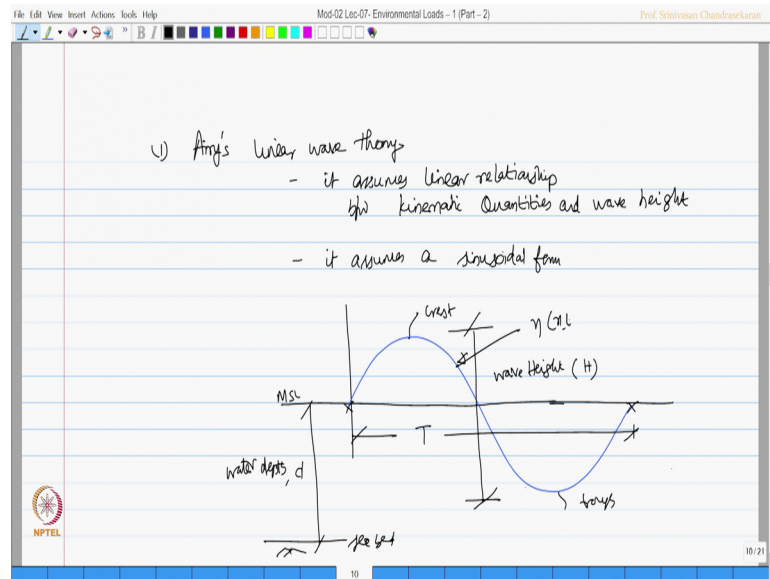 File Edit View Insert Actions Tools Help
Mod-02 Lec-07- Environmental Loads – 1 (Part – 2)
Prof. Srinivasan Chandrasekaran
B I
(1) Airy's linear wave theory
- it assumes linear relationship
b/w kinematic Quantities and wave height
- it assumes a sinusoidal form
Crest
η(x,t
wave Height (H)
MSL
T
water depth, d
trough
sea bed
NPTEL
10/21
10